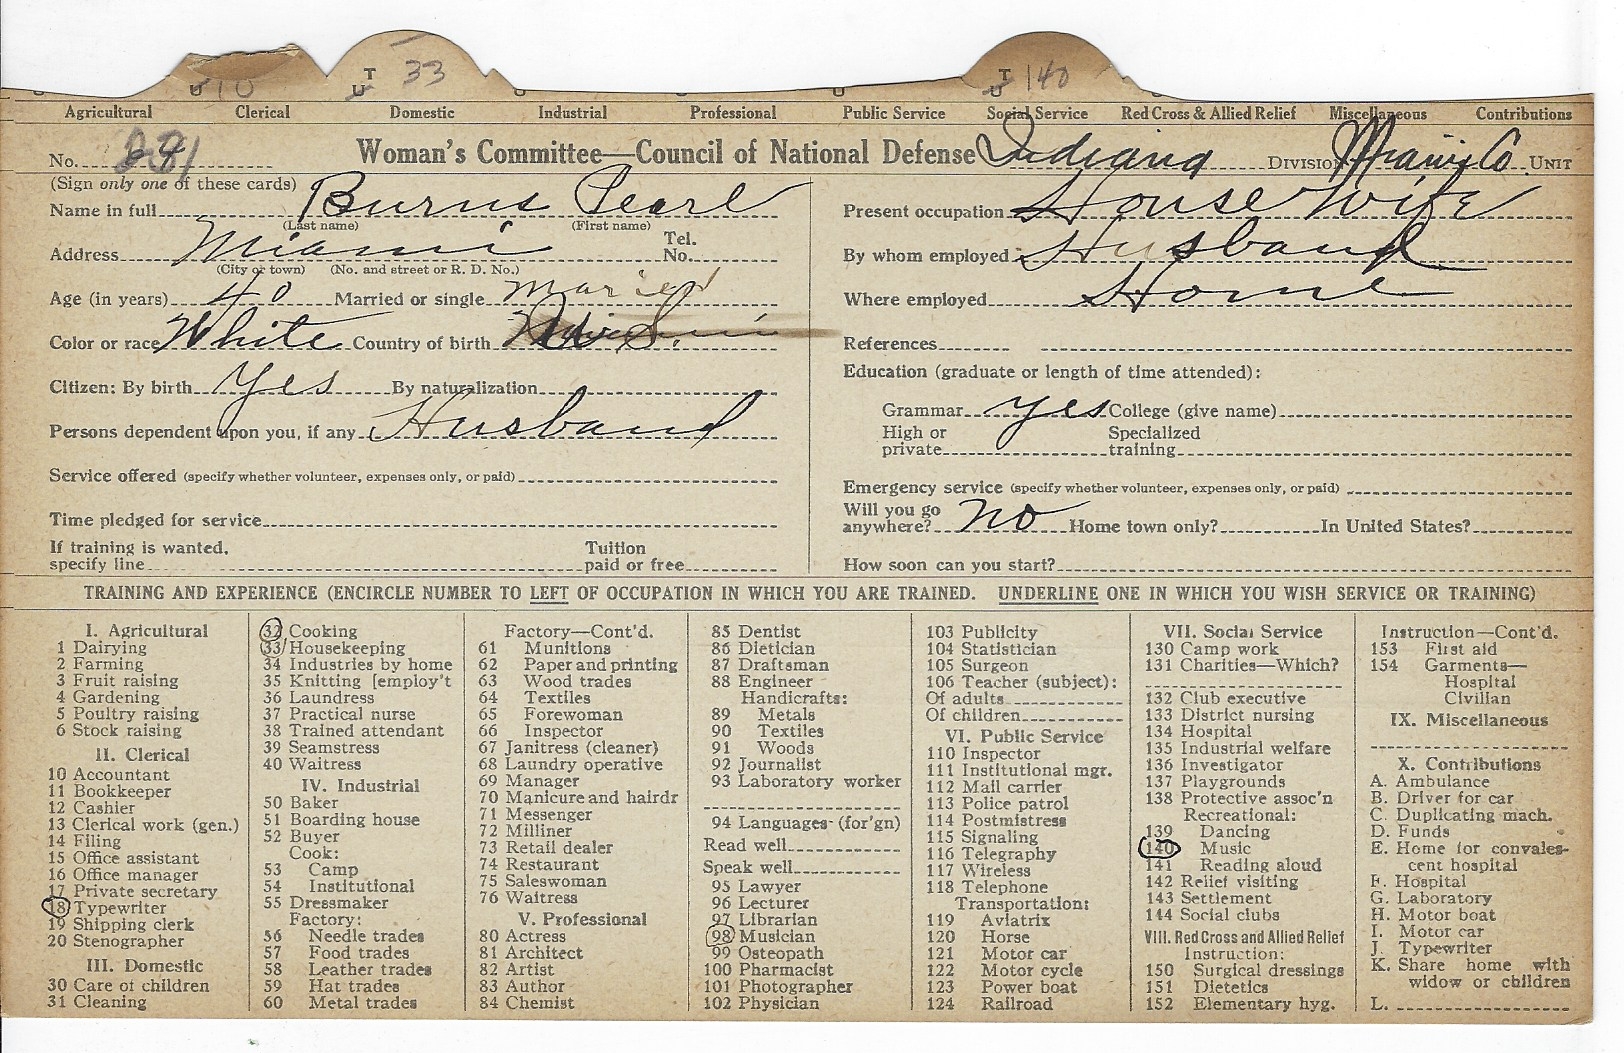 T 33 T 140
U 10 U U
Agricultural Clerical Domestic Industrial Professional Public Service Social Service Red Cross & Allied Relief Miscellaneous Contributions
No. Woman's Committee—Council of National Defense Indiana DIVISION Miami Co. UNIT
(Sign only one of these cards)
Name in full Burns Pearl
(Last name) (First name)
Address Miami Tel. No.
(City or town) (No. and street or R. D. No.)
Age (in years) 40 Married or single Maried
Color or race White Country of birth
Citizen: By birth Yes By naturalization
Persons dependent upon you, if any Husband
Service offered (specify whether volunteer, expenses only, or paid)
Time pledged for service
If training is wanted, specify line Tuition paid or free
Present occupation House Wife
By whom employed Husband
Where employed Home
References
Education (graduate or length of time attended):
Grammar yes College (give name)
High or private Specialized training
Emergency service (specify whether volunteer, expenses only, or paid)
Will you go anywhere? no Home town only? In United States?
How soon can you start?
TRAINING AND EXPERIENCE (ENCIRCLE NUMBER TO LEFT OF OCCUPATION IN WHICH YOU ARE TRAINED. UNDERLINE ONE IN WHICH YOU WISH SERVICE OR TRAINING)
I. Agricultural
1 Dairying
2 Farming
3 Fruit raising
4 Gardening
5 Poultry raising
6 Stock raising
II. Clerical
10 Accountant
11 Bookkeeper
12 Cashier
13 Clerical work (gen.)
14 Filing
15 Office assistant
16 Office manager
17 Private secretary
18 Typewriter
19 Shipping clerk
20 Stenographer
III. Domestic
30 Care of children
31 Cleaning
32 Cooking
33 Housekeeping
34 Industries by home
35 Knitting [employ't
36 Laundress
37 Practical nurse
38 Trained attendant
39 Seamstress
40 Waitress
IV. Industrial
50 Baker
51 Boarding house
52 Buyer
Cook:
53 Camp
54 Institutional
55 Dressmaker
Factory:
56 Needle trades
57 Food trades
58 Leather trades
59 Hat trades
60 Metal trades
Factory—Cont'd.
61 Munitions
62 Paper and printing
63 Wood trades
64 Textiles
65 Forewoman
66 Inspector
67 Janitress (cleaner)
68 Laundry operative
69 Manager
70 Manicure and hairdr
71 Messenger
72 Milliner
73 Retail dealer
74 Restaurant
75 Saleswoman
76 Waitress
V. Professional
80 Actress
81 Architect
82 Artist
83 Author
84 Chemist
85 Dentist
86 Dietician
87 Draftsman
88 Engineer
Handicrafts:
89 Metals
90 Textiles
91 Woods
92 Journalist
93 Laboratory worker
94 Languages (for'gn)
Read well
Speak well
95 Lawyer
96 Lecturer
97 Librarian
98 Musician
99 Osteopath
100 Pharmacist
101 Photographer
102 Physician
103 Publicity
104 Statistician
105 Surgeon
106 Teacher (subject):
Of adults
Of children
VI. Public Service
110 Inspector
111 Institutional mgr.
112 Mail carrier
113 Police patrol
114 Postmistress
115 Signaling
116 Telegraphy
117 Wireless
118 Telephone
Transportation:
119 Aviatrix
120 Horse
121 Motor car
122 Motor cycle
123 Power boat
124 Railroad
VII. Social Service
130 Camp work
131 Charities—Which?
132 Club executive
133 District nursing
134 Hospital
135 Industrial welfare
136 Investigator
137 Playgrounds
138 Protective assoc'n
Recreational:
139 Dancing
140 Music
141 Reading aloud
142 Relief visiting
143 Settlement
144 Social clubs
VIII. Red Cross and Allied Relief
Instruction:
150 Surgical dressings
151 Dietetics
152 Elementary hyg.
Instruction—Cont'd.
153 First aid
154 Garments—
Hospital
Civilian
IX. Miscellaneous
X. Contributions
A. Ambulance
B. Driver for car
C. Duplicating mach.
D. Funds
E. Home for convales-
cent hospital
F. Hospital
G. Laboratory
H. Motor boat
I. Motor car
J. Typewriter
K. Share home with
widow or children
L.